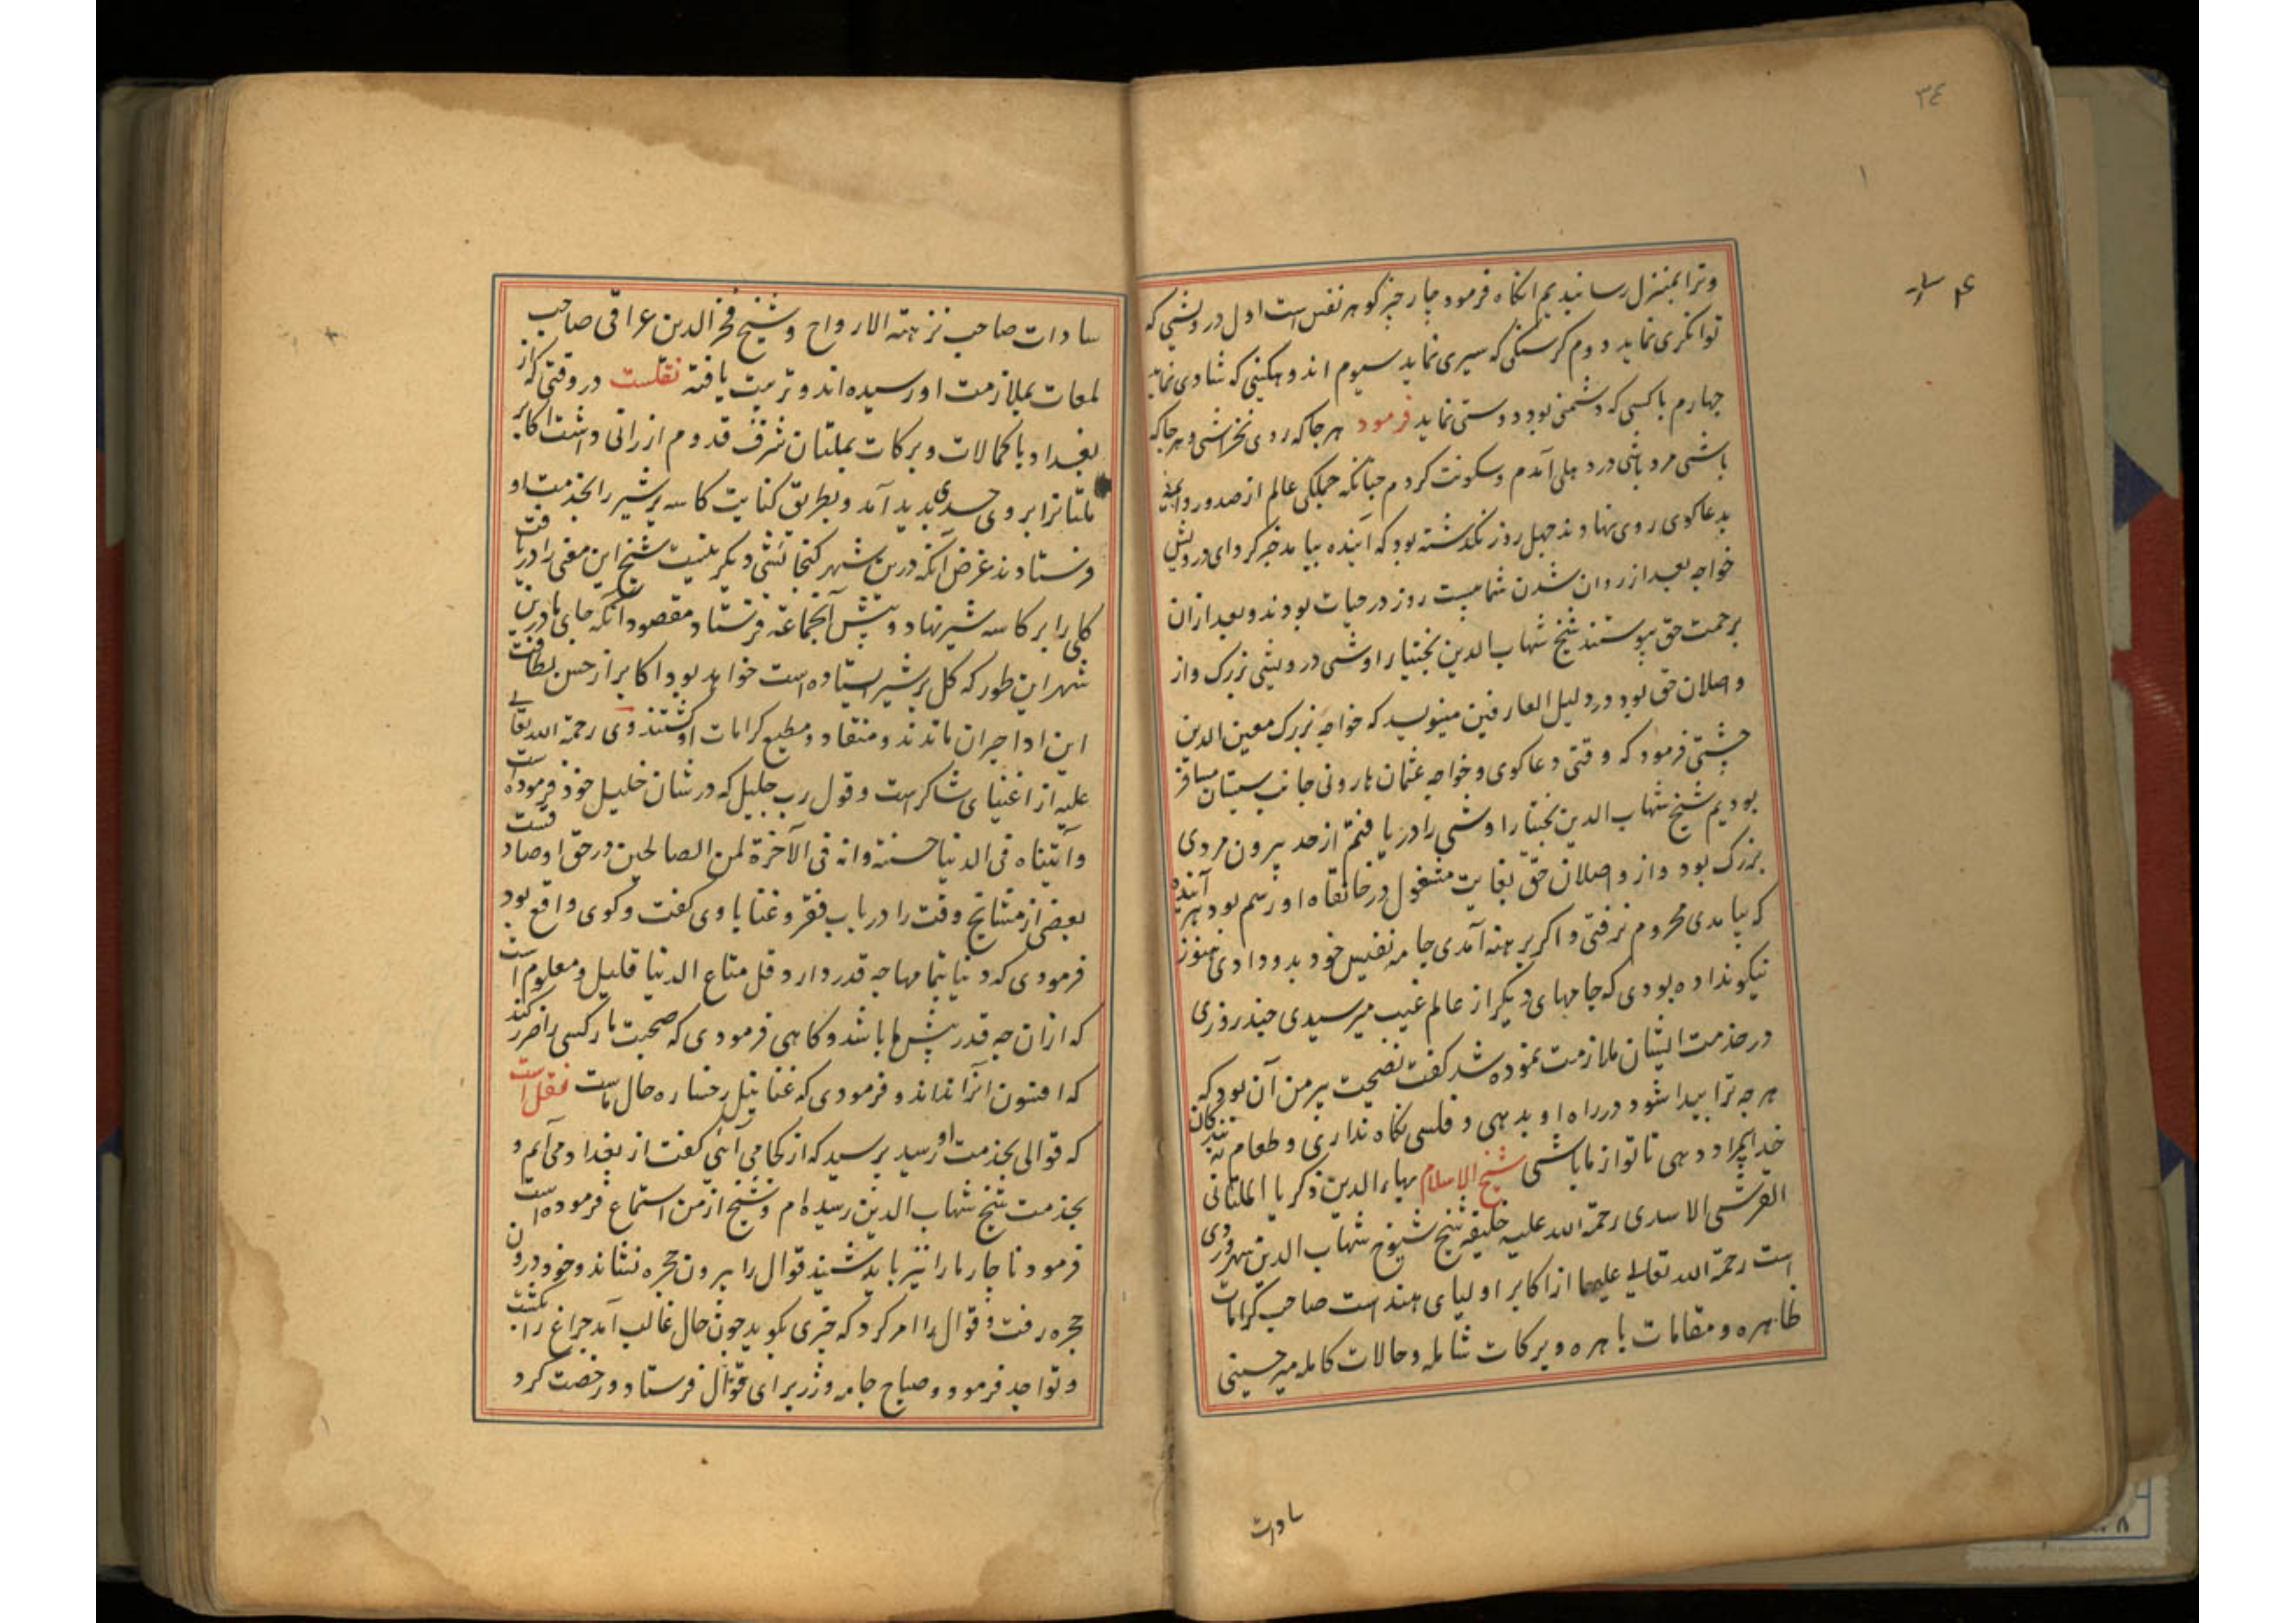 ۳٤
وترا بمنزل رسانیدیم انکاه فرمود چار چیز کوهر نفس است اول درویشی که
توانکری نماید دوم کرسنکی که سیری نماید سیوم اندوهکینی که شادی نماید
چهارم با کسی که دشمنی بود دوستی نماید فرمود هرجا که روی نخراشی و هرجا که
باشی مرد باشی در دهلی آمدم و سکونت کردم چنانکه جملکی عالم از صدور و ایمه
بدعاکوی روی نهادند چهل روز نکذشته بود که آینده بیامد خبر کرد ای درویش
خواجه بعد از روان شدن شما بیست روز در حیات بودند و بعد ازان
برحمت حق پیوستند شیخ شهاب الدین بختیار اوشی درویشی بزرک و از
واصلان حق بود در دلیل العارفین مینویسد که خواجه بزرک معین الدین
چشتی فرمود که وقتی دعاکوی و خواجه عثمان هارونی جانب سیستان مسافر
بودیم شیخ شهاب الدین بختیار اوشی را دریافتم از حد بیرون مردی
بزرک بود و از واصلان حق بغایت مشغول در خانقاه او رسم بود هر آینده
که بیامدی محروم نرفتی و اکر برهنه آمدی جامه نفیس خود بدو دادی هنوز
نیکو نداده بودی که جامهای دیکر از عالم غیب میرسیدی چند روزی
در خدمت ایشان ملازمت نموده شد کفت نصیحت پیر من آن بود که
هر چه ترا پیدا شود در راه او بدهی و فلسی نکاه نداری و طعام به بندکان
خدایرا دهی تا تو از ما باشی شیخ الاسلام بهاء الدین ذکریا الملتانی
القرشی الاسدی رحمة الله علیه خلیفه شیخ شیوخ شهاب الدین سهروردی
است رحمة الله تعالی علیهما از اکابر اولیای هند است صاحب کرامات
ظاهره و مقامات باهره و برکات شامله و حالات کامله میر حسینی
سادات
سادات صاحب نزهته الارواح و شیخ فخر الدین عراقی صاحب
لمعات بملازمت او رسیده اند و تربیت یافته نقلست در وقتی که از
بغداد با کمالات و برکات بملتان شرف قدوم ارزانی داشت اکابر
ملتانرا بروی حسدی پدید آمد و بطریق کنایت کاسه پر شیر را بخدمت او
فرستادند غرض آنکه درین شهر کنجائشی دیکر نیست شیخ این معنی را دریافت
کلی را بر کاسه شیر نهاد و پیش آنجماعه فرستاد مقصود آنکه جای ما درین
شهر این طور که کل بر شیر ایستاده است خواهد بود اکابر از حسن لطافت
این ادا حیران ماندند و منقاد و مطیع کرامات او کشتند و وی رحمة الله تعالی
علیه از اغنیای شاکر است و قول رب جلیل که در شان خلیل خود فرموده است
وآتیناه فی الدنیا حسنة وانه فی الآخرة لمن الصالحین در حق او صادقست
بعضی از مشائخ وقت را در باب فقر و غنا با وی کفت و کوی واقع بود
فرمودی که دنیا بتمامها چه قدر دارد قل متاع الدنیا قلیل و معلوم است
که ازان چه قدر پیش ما باشد و کاهی فرمودی که صحبت مار کسی را ضرر کند
که افسون آنرا نداند و فرمودی که غنا نیل رخساره حال ماست نقل است
که قوالی بخدمت او رسید پرسید که از کجا می آئی کفت از بغداد می آیم و
بخدمت شیخ شهاب الدین رسیده ام و شیخ از من استماع فرموده است
فرمود ناچار ما را نیز باید شنید قوال را بیرون حجره نشاند و خود درون
حجره رفت و قوال را امر کرد که چیزی بکوید چون حال غالب آمد چراغ را بکشت
و تواجد فرمود و صباح جامه و زر برای قوال فرستاد و رخصت کرد